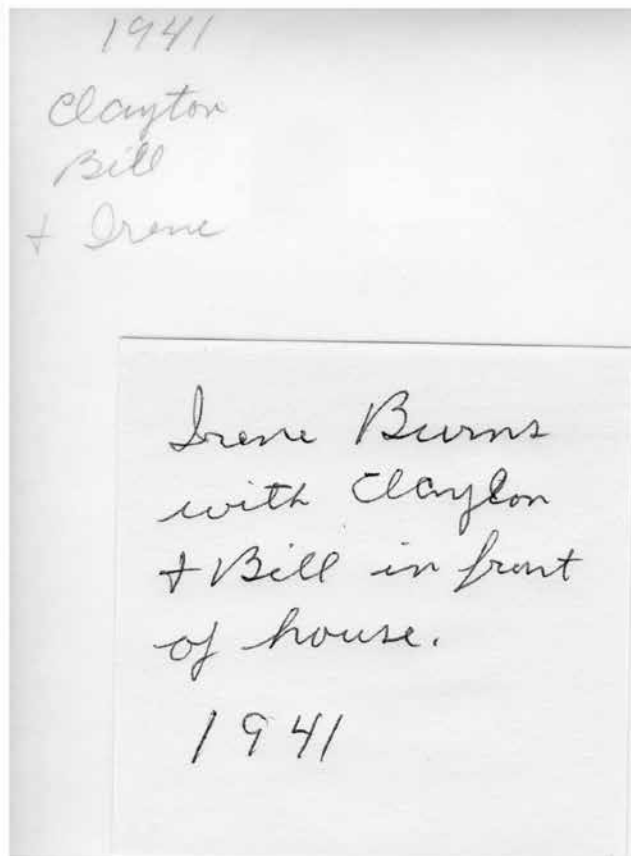 1941
Clayton
Bill
+ Irene
Irene Burns
with Clayton
+ Bill in front
of house.
1941